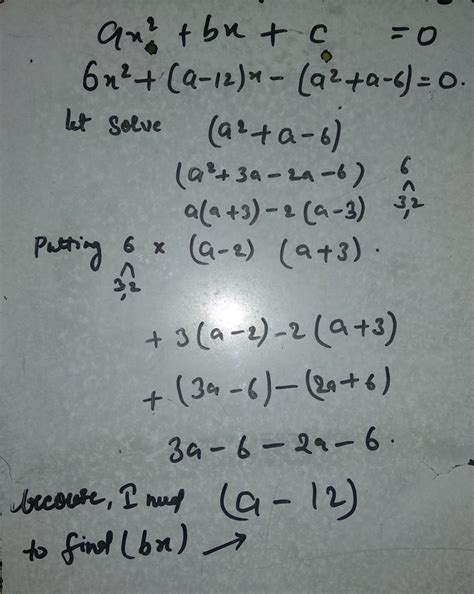 ax² + bx + c = 0
6x² + (a-12)x - (a²+a-6) = 0.
let solve (a²+a-6)
(a²+3a-2a-6) 6
a(a+3)-2(a-3) 3,2
Putting 6 × (a-2) (a+3).
3,2
+ 3(a-2)-2(a+3)
+ (3a-6)-(2a+6)
3a-6-2a-6.
because, I need (a-12)
to find (bx) →